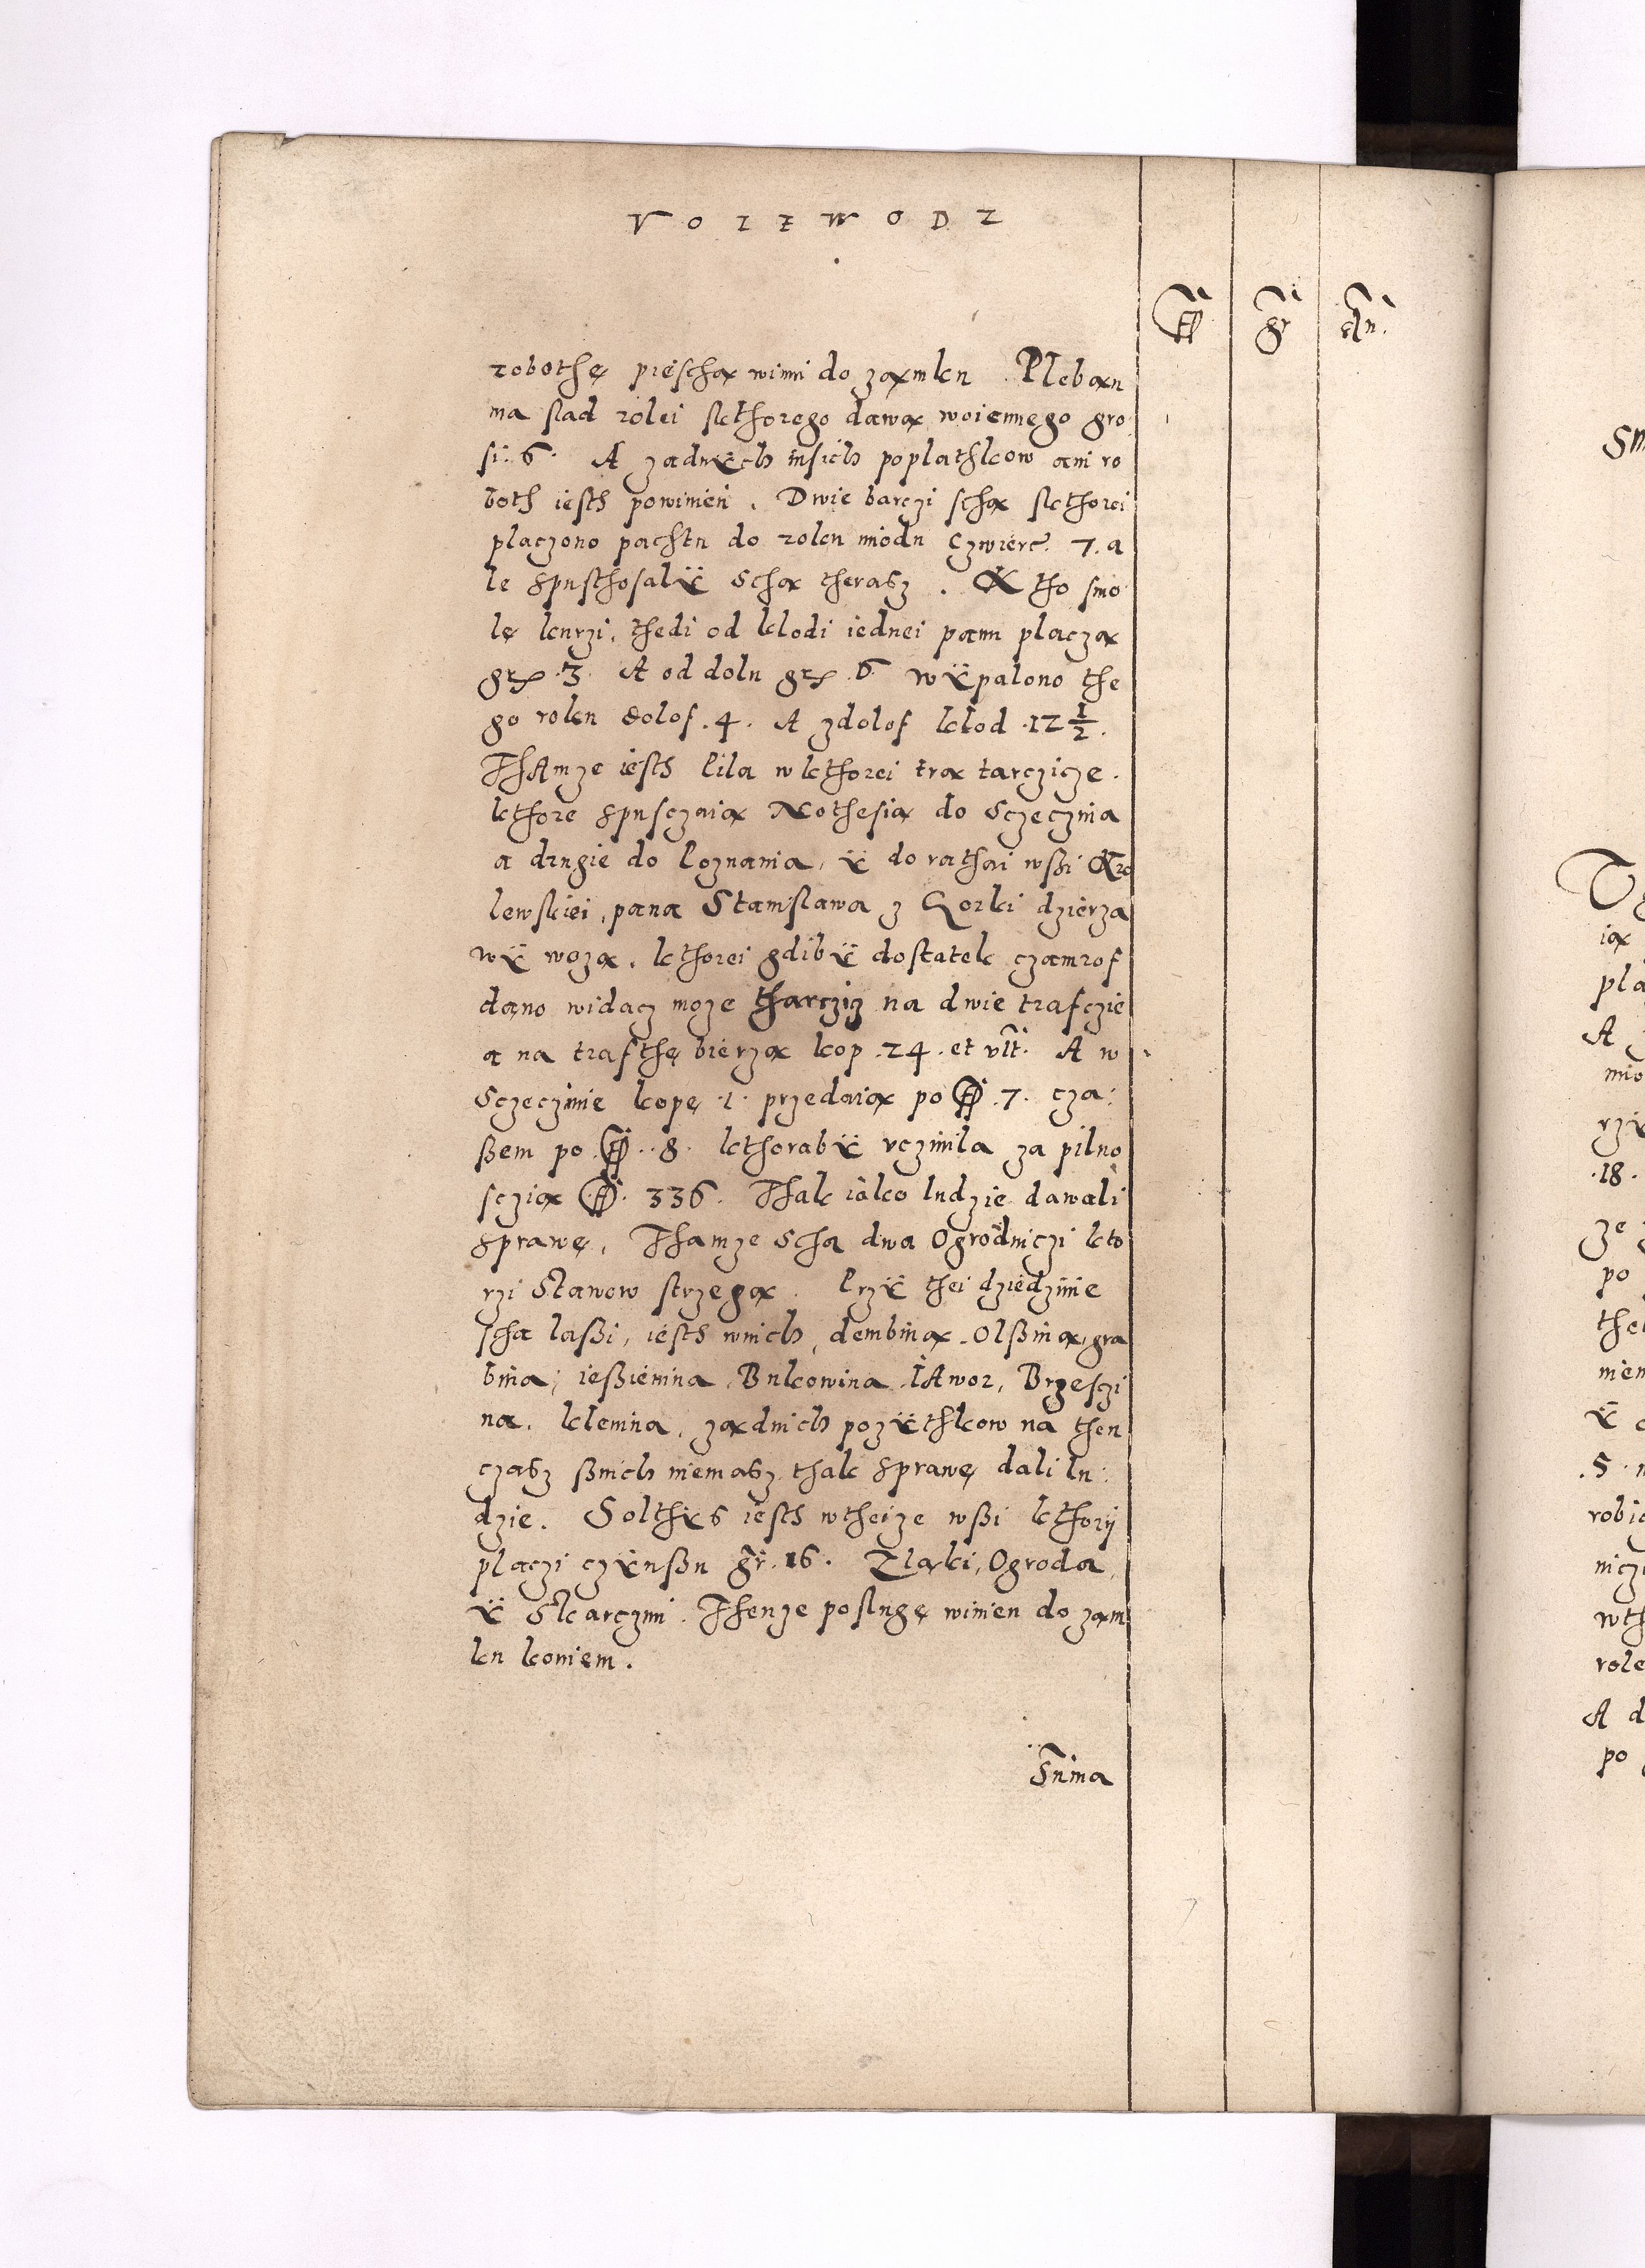 VOIEWODZ
fl gr đn.
robothę pieschą winni do zamku Pleban
ma slad rolei skthorego dawa woiennego gro
si: 6. A zadnÿch insich poplathkow ani ro
both iesth powinien. Dwie barczi schą skthorei
placzono pachtu do roku miodu Czwierć. 7. a
le spusthosalÿ Schą therasz. Kto smo
lę kurzi, thedi od klodi iednei panu placzą
grß 3. A od dolu grß 6 wÿpalono the
go roku dolof. 4. A zdolof klod .12 1/2.
ThAmze iesth Pila w kthorei trą tarczicze.
kthore spusczaią Nothesią do Sczeczina
a drugie do Poznania, ÿ do rathai wßi Kro
lewskiei, pana Stanislawa z Gorki dzierza
wÿ wozą. kthorei gdibÿ dostatek czamrof
dano widacz moze tharczicz na dwie trafczie
a na trafthę bierzą kop .24. et vlt. A w
Sczeczinie kopę .1. przedaią po fl .7. cza:
ßem po fl .8. kthorabÿ vczinila za pilno
sczią fl. 336. Thak iako ludzie dawali
sprawę. Thamze Scha dwa Ogrodniczi kto
rzi Stawow strzegą. Przÿ thei dziedzinie
scha laßi, iesth wnich, dembiną. Olßiną, gra
bina, ießienina, Bukowina, iAwor, Brzesczi
na. klenina, zadnich pozÿthkow na then
czasz ßnich niemasz, thak sprawę dali lu:
dzie. Solthys iesth wtheize wßi kthorÿ
placzi czÿnßu gr. 16. Zlaki, Ogroda,
ÿ Skarczmi. Thenze poslugę winien do zam
ku koniem.
Suma